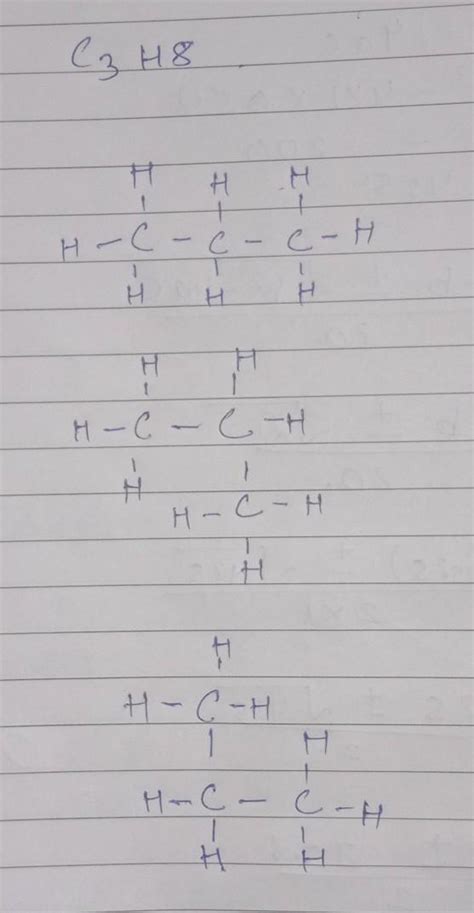 C3H8
H H H
H - C - C - C - H
H H H
H H
H - C - C - H
H
H - C - H
H
H
H - C - H
H
H - C - C - H
H H